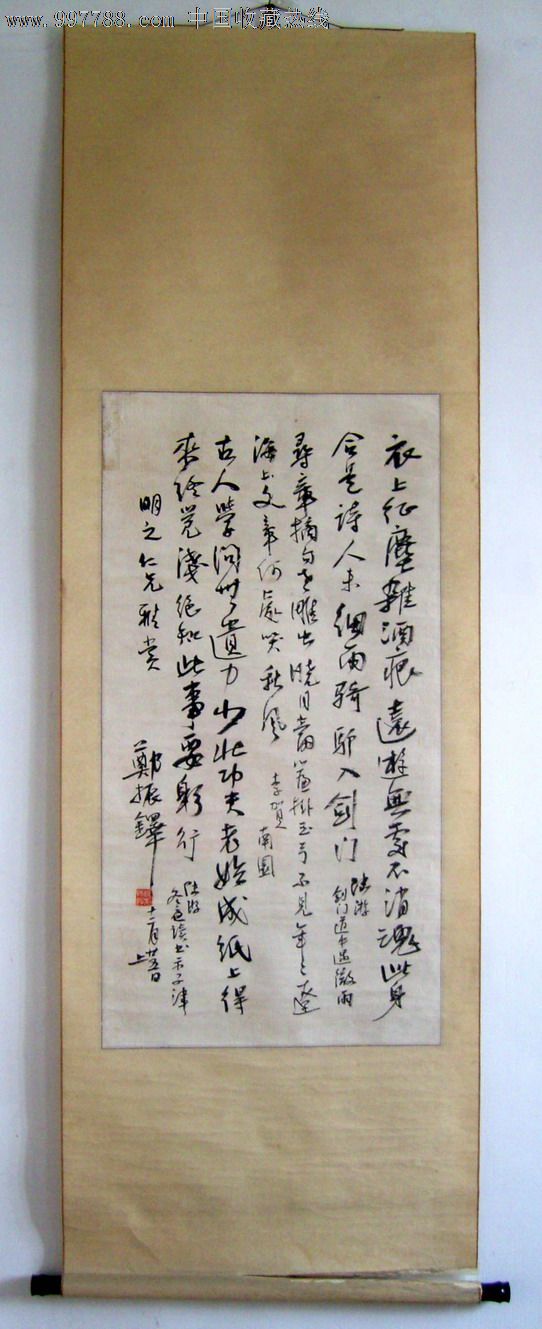 www.997788.com 中国收藏热线
衣上征塵雜酒痕遠遊無處不消魂此身
合是詩人未細雨騎驴入剑门
陆游
剑门道中遇微雨
尋章摘句老雕虫曉月當簾掛玉弓不見年々遼
海上文章何處哭秋風
李賀
南園
古人學問無遺力少壯功夫老始成紙上得
来终覺淺绝知此事要躬行
陆游
冬夜读书示子津
明之仁兄雅赏
鄭振鐸
十二月廿五日
上